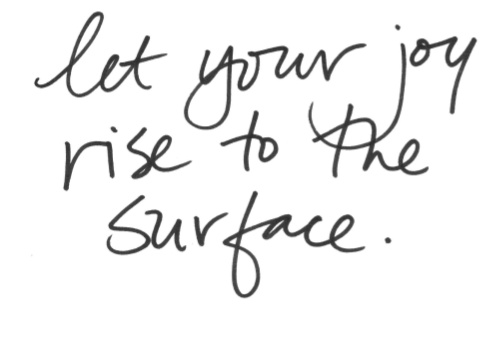 let your joy
rise to the
surface.